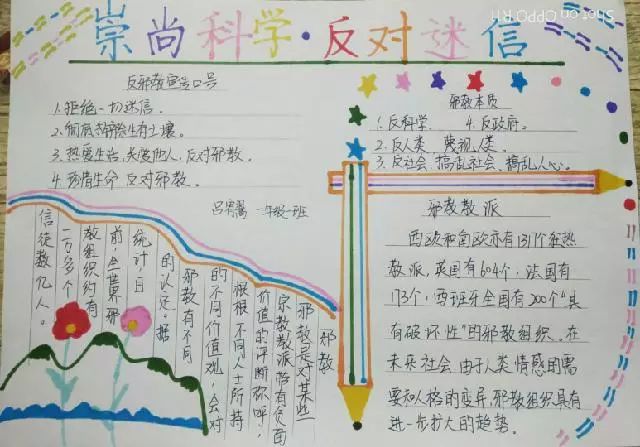 崇尚科学·反对迷信
Shot on OPPO R11
反邪教宣传口号
1.拒绝一切迷信。
2.彻底摒除生存土壤。
3.热爱生活,关爱他人,反对邪教。
4.珍惜生命 反对邪教。
一年级一班
邪教本质
1.反科学 4.反政府。
2.反人类 蔑视人类。
3.反社会 搞乱社会、搞乱人心。
邪教教派
西欧和南欧亦有1317个狂热
教派,英国有604个,法国有
173个,西班牙全国有200个“具
有破坏性”的邪教组织。在
未来社会由于人类情感的需
要和人格的变异,邪教组织具有
进一步扩大的趋势。
邪教
邪教是对某些
宗教教派怡有负面
价值的评断称呼,
根据不同人士所持
的不同价值观,会对
邪教有不同
的认还。据
统计,目
前,全世界邪
教组织约有
一万多个
信徒数亿人。